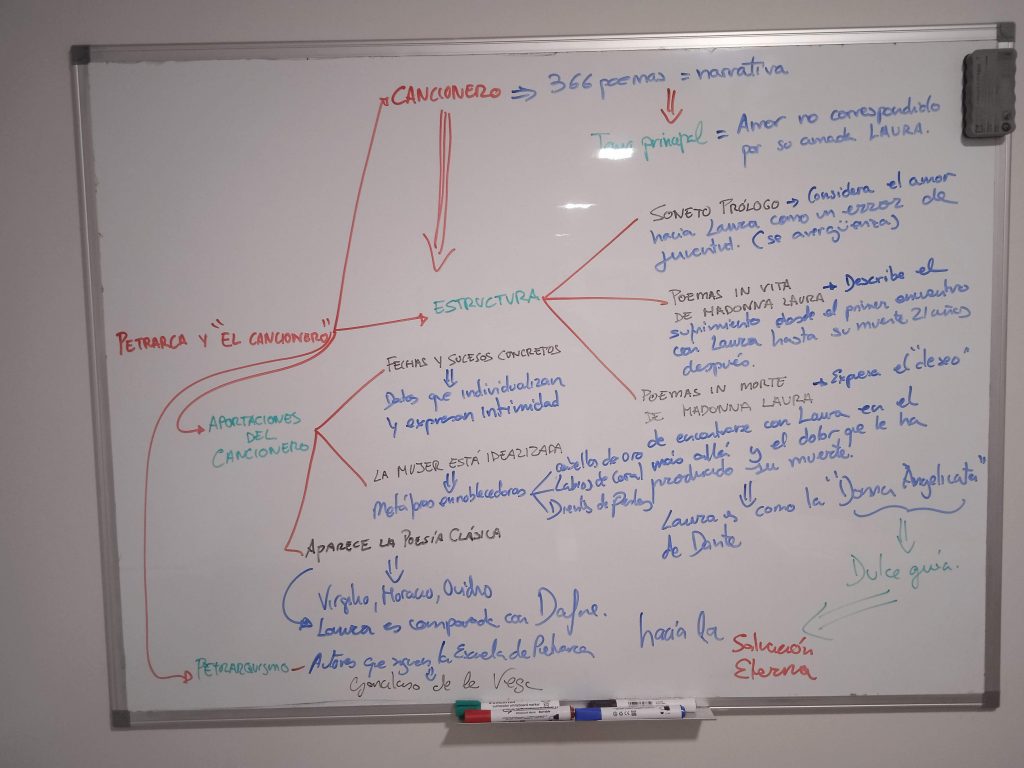 CANCIONERO ⇒ 366 poemas = narrativa
Tema principal = Amor no correspondido
por su amada LAURA.
SONETO PRÓLOGO → Considera el amor
hacia Laura como un error de
juventud. (se avergüenza)
ESTRUCTURA
POEMAS IN VITA
DE MADONNA LAURA → Describe el
sufrimiento desde el primer encuentro
con Laura hasta su muerte 21 años
después.
POEMAS IN MORTE
DE MADONNA LAURA → Expresa el "deseo"
de encontrarse con Laura en el
más allá y el dolor que le ha
producido su muerte.
Laura es como la "Donna Angelicata"
de Dante
Dulce guía.
hacia la
Salvación
Eterna
PETRARCA Y "EL CANCIONERO"
APORTACIONES
DEL
CANCIONERO
FECHAS Y SUCESOS CONCRETOS
Datos que individualizan
y expresan intimidad
LA MUJER ESTÁ IDEALIZADA
Metáforas ennoblecedoras
cabellos de oro
Labios de Coral
Dientes de Perlas
APARECE LA POESÍA CLÁSICA
Virgilio, Horacio, Ovidio
Laura es comparada con Dafne.
PETRARQUISMO - Autores que siguen la Escuela de Petrarca
Garcilaso de la Vega